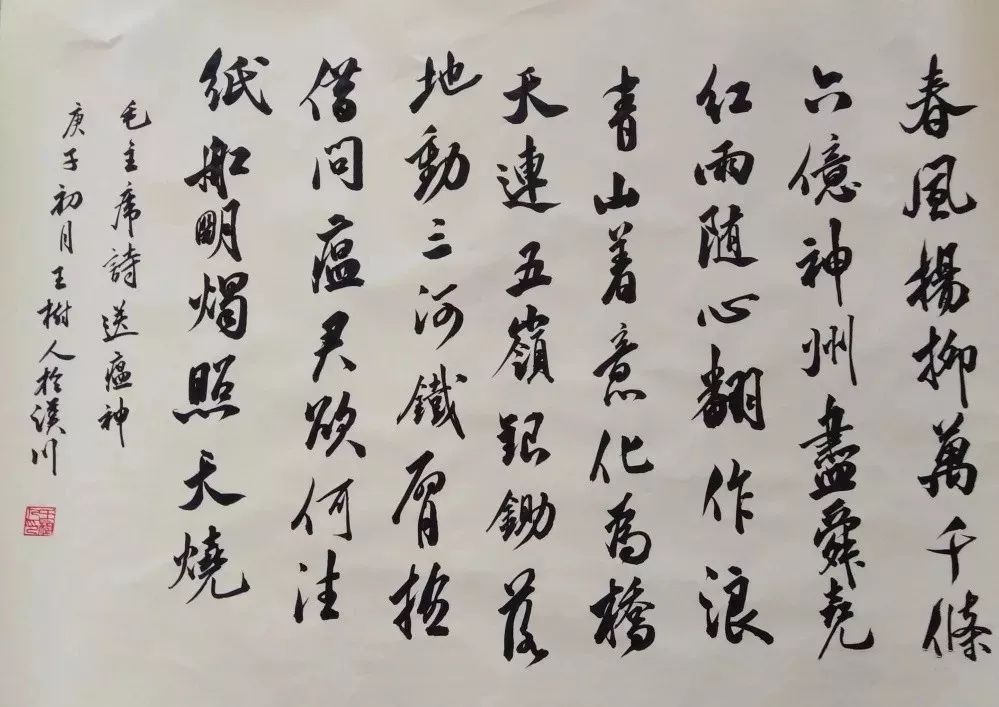 春風楊柳萬千條
六億神州盡舜堯
紅雨随心翻作浪
青山着意化為橋
天連五嶺銀鋤落
地動三河鐵臂搖
借問瘟君欲何往
紙船明燭照天燒
毛主席詩送瘟神
庚子初月王樹人於漢川